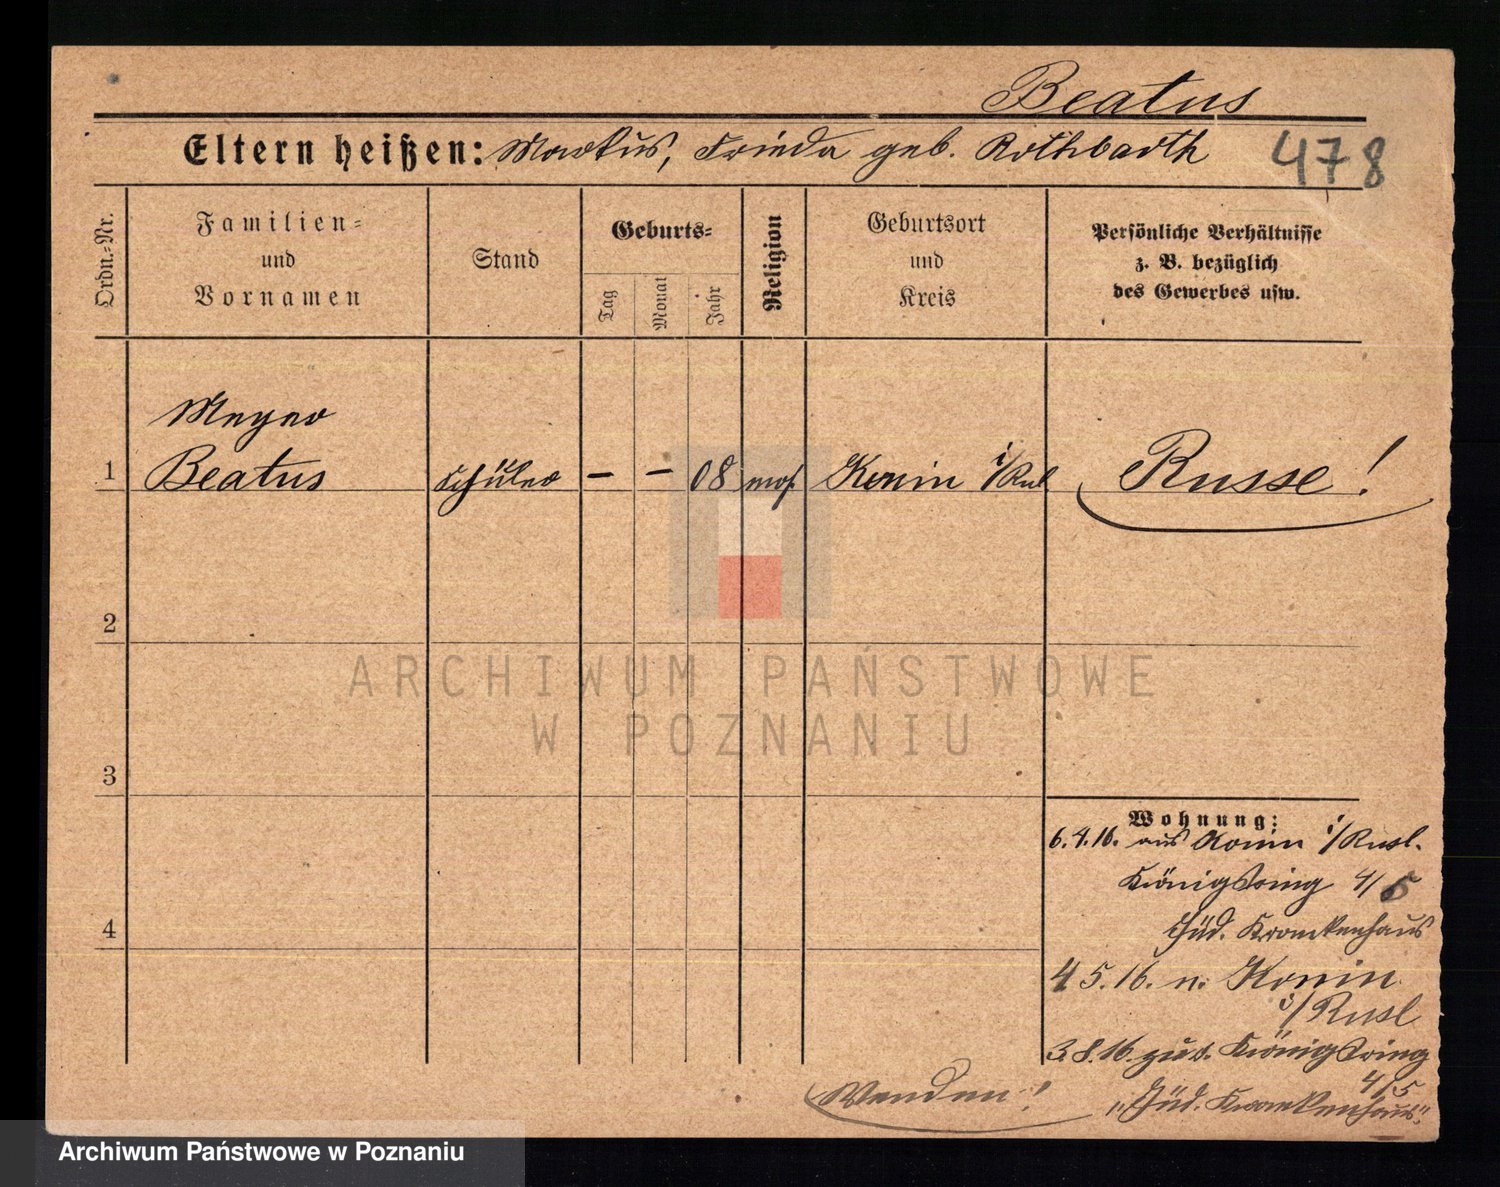 Beatus
Eltern heißen: Markus, Frieda geb. Rothbarth
478
Ordn.-Nr.
Familien-
und
Vornamen
Stand
Geburts-
Tag
Monat
Jahr
Religion
Geburtsort
und
Kreis
Persönliche Verhältnisse
z. B. bezüglich
des Gewerbes usw.
Meyer
1 Beatus Schüler – – 08 mos. Konin i/Rußl Russe!
2
3
4
Wohnung:
6.4.16. aus Konin i/Russl.
Königsring 4/5
Jüd. Krankenhaus
4 5.16. n. Konin
i/Russl
3.8.16. zur. Königsring
4/5
"Jüd. Krankenhaus"
Wenden!
ARCHIWUM PAŃSTWOWE
W POZNANIU
Archiwum Państwowe w Poznaniu